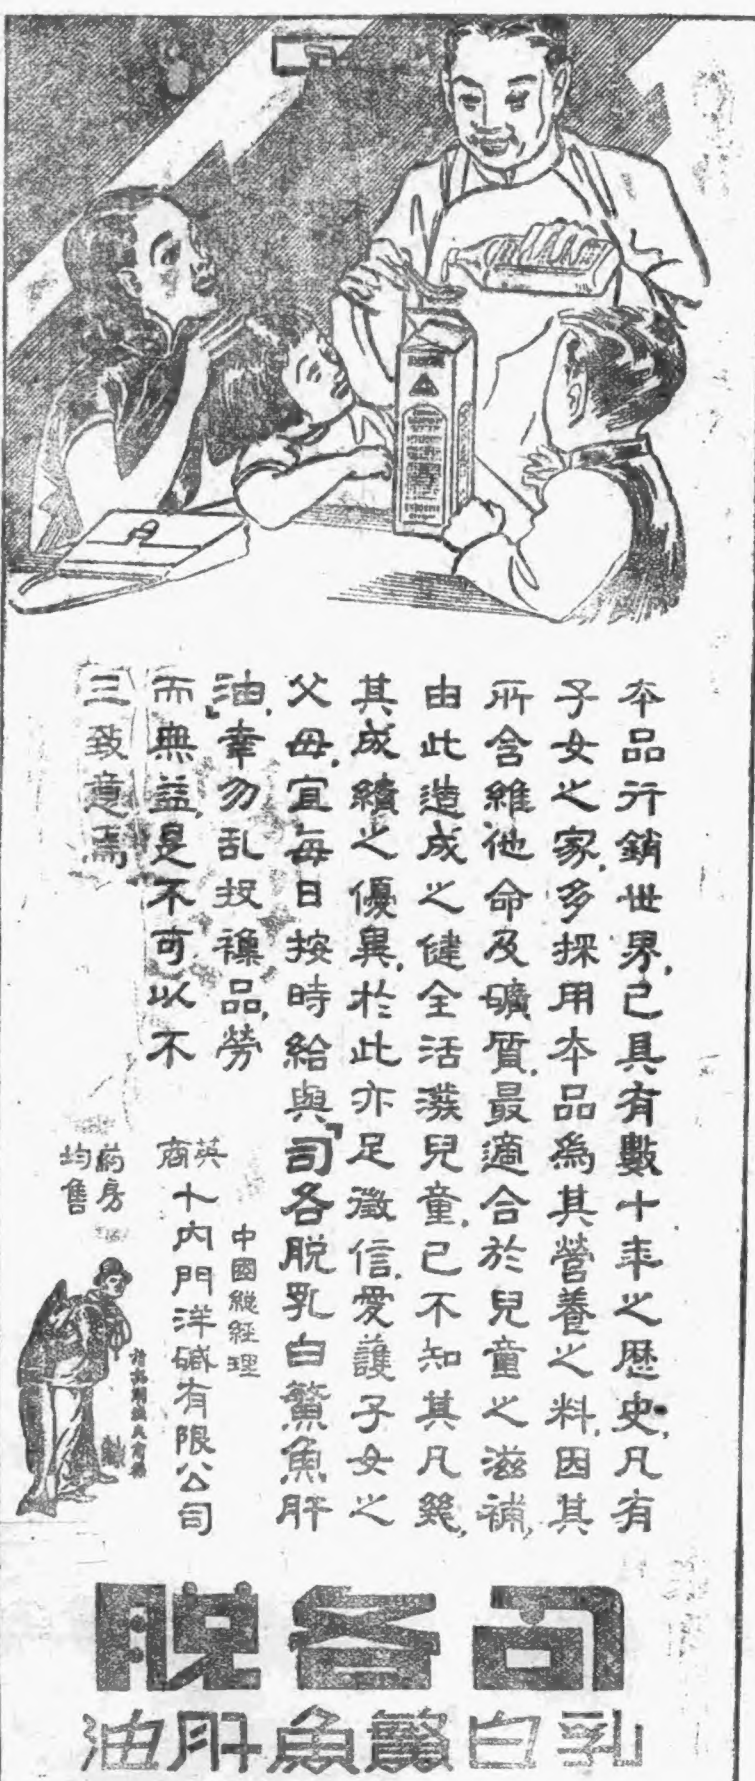 本品行銷世界,已具有數十年之歷史,凡有
子女之家,多採用本品爲其營養之料,因其
所含維他命及礦質,最適合於兒童之滋補,
由此造成之健全活潑兒童,已不知其凡幾,
其成績之優異,於此亦足徵信,愛護子女之
父母,宜每日按時給與「司各脫乳白鰵魚肝
油」,幸勿乱投藥品,勞
而無益,是不可以不
三致意焉
中國總經理
英商卜內門洋碱有限公司
药房
均售
請認明漁夫商標
司各脫
乳白鰵魚肝油